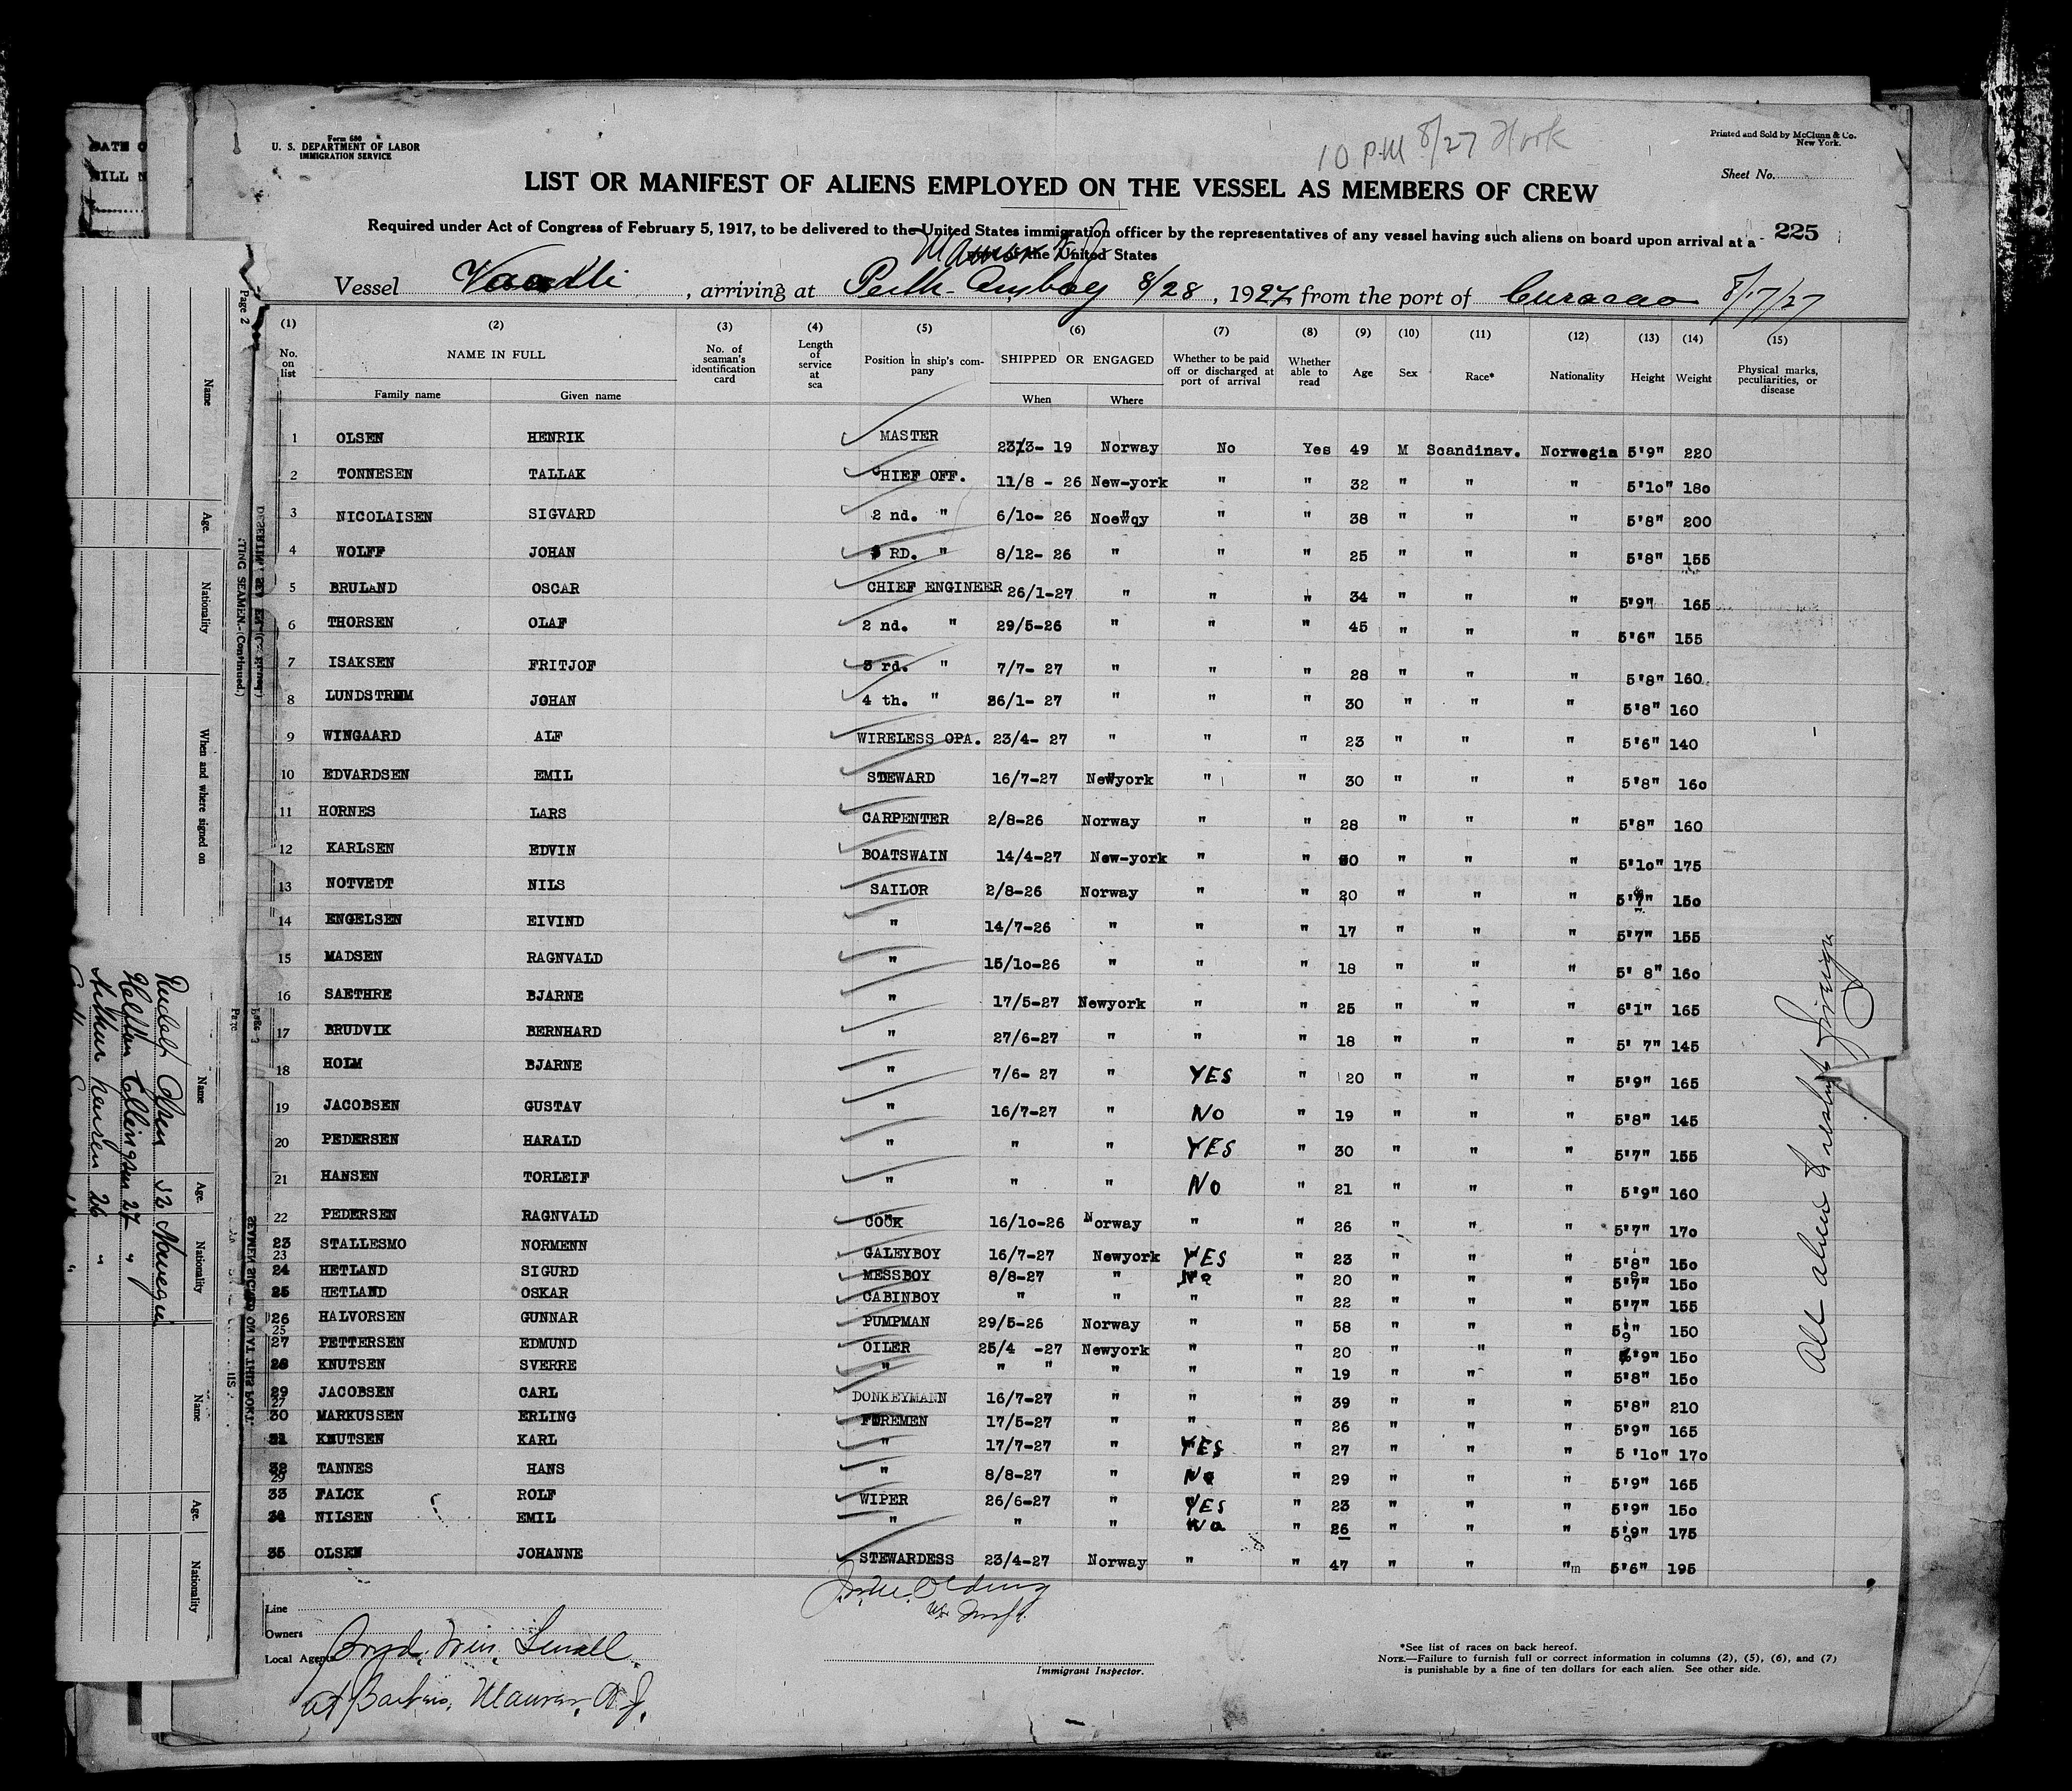 Form 680
U. S. DEPARTMENT OF LABOR
IMMIGRATION SERVICE
10 P.M 8/27 Hook
Printed and Sold by McClunn & Co.
New York.
Sheet No.
LIST OR MANIFEST OF ALIENS EMPLOYED ON THE VESSEL AS MEMBERS OF CREW
Required under Act of Congress of February 5, 1917, to be delivered to the United States immigration officer by the representatives of any vessel having such aliens on board upon arrival at a 225
port of the United States
Vessel , arriving at Perth Amboy 8/28, 1927 from the port of Curacao 8/17/27
(1) (2) (3) (4) (5) (6) (7) (8) (9) (10) (11) (12) (13) (14) (15)
No. on list NAME IN FULL Family name Given name No. of seaman's identification card Length of service at sea Position in ship's company SHIPPED OR ENGAGED When Where Whether to be paid off or discharged at port of arrival Whether able to read Age Sex Race* Nationality Height Weight Physical marks, peculiarities, or disease
1 OLSEN HENRIK MASTER 23/3- 19 Norway No Yes 49 M Scandinav. Norwegia 5'9" 220
2 TONNESEN TALLAK CHIEF OFF. 11/8 - 26 New-york " " 32 " " " 5'10" 180
3 NICOLAISEN SIGVARD 2 nd. " 6/10- 26 Noewqy " " 38 " " " 5'8" 200
4 WOLFF JOHAN 3 RD. " 8/12- 26 " " " 25 " " " 5'8" 155
5 BRULAND OSCAR CHIEF ENGINEER 26/1-27 " " " 34 " " " 5'9" 165
6 THORSEN OLAF 2 nd. " 29/5-26 " " " 45 " " " 5'6" 155
7 ISAKSEN FRITJOF 3 rd. " 7/7- 27 " " " 28 " " " 5'8" 160
8 LUNDSTRMM JOHAN 4 th. " 26/1- 27 " " " 30 " " " 5'8" 160
9 WINGAARD ALF WIRELESS OPA. 23/4- 27 " " " 23 " " " 5'6" 140
10 EDVARDSEN EMIL STEWARD 16/7-27 Newyork " " 30 " " " 5'8" 160
11 HORNES LARS CARPENTER 2/8-26 Norway " " 28 " " " 5'8" 160
12 KARLSEN EDVIN BOATSWAIN 14/4-27 New-york " " 30 " " " 5'10" 175
13 NOTVEDT NILS SAILOR 2/8-26 Norway " " 20 " " " 5'7" 150
14 ENGELSEN EIVIND " 14/7-26 " " " 17 " " " 5'7" 155
15 MADSEN RAGNVALD " 15/10-26 " " " 18 " " " 5' 8" 160
16 SAETHRE BJARNE " 17/5-27 Newyork " " 25 " " " 6'1" 165
17 BRUDVIK BERNHARD " 27/6-27 " " " 18 " " " 5' 7" 145
18 HOLM BJARNE " 7/6- 27 " YES " 20 " " " 5'9" 165
19 JACOBSEN GUSTAV " 16/7-27 " NO " 19 " " " 5'8" 145
20 PEDERSEN HARALD " " " YES " 30 " " " 5'7" 155
21 HANSEN TORLEIF " " " NO " 21 " " " 5'9" 160
22 PEDERSEN RAGNVALD COOK 16/10-26 Norway " " 26 " " " 5'7" 170
23 STALLESMO NORMENN GALEYBOY 16/7-27 Newyork YES " 23 " " " 5'8" 150
24 HETLAND SIGURD MESSBOY 8/8-27 " No " 20 " " " 5'7" 150
25 HETLAND OSKAR CABINBOY " " " " 22 " " " 5'7" 155
26 HALVORSEN GUNNAR PUMPMAN 29/5-26 Norway " " 58 " " " 5'9" 150
27 PETTERSEN EDMUND OILER 25/4 -27 Newyork " " 20 " " " 5'9" 150
28 KNUTSEN SVERRE " " " " " " 19 " " " 5'8" 150
29 JACOBSEN CARL DONKEYMANN 16/7-27 " " " 39 " " " 5'8" 210
30 MARKUSSEN ERLING FOREMEN 17/5-27 " " " 26 " " " 5'9" 165
31 KNUTSEN KARL " 17/7-27 " YES " 27 " " " 5 '10" 170
32 TANNES HANS " 8/8-27 " No " 29 " " " 5'9" 165
33 FALCK ROLF WIPER 26/6-27 " YES " 23 " " " 5'9" 150
34 NILSEN EMIL " " " No " 26 " " " 5'9" 175
35 OLSEN JOHANNE STEWARDESS 23/4-27 Norway " " 47 " " "m 5'6" 195
Line
Owners
Local Agents
Immigrant Inspector.
*See list of races on back hereof.
NOTE.—Failure to furnish full or correct information in columns (2), (5), (6), and (7)
is punishable by a fine of ten dollars for each alien. See other side.
Page 2
Name
Age.
Nationality
When and where signed on
TING SEAMEN.-(Continued.)
Name
Age.
Nationality
Rudolf Olsen 32 Norwegia
Ellingsen 27 "
Arthur Hansen 26 "
Name
Age.
Nationality